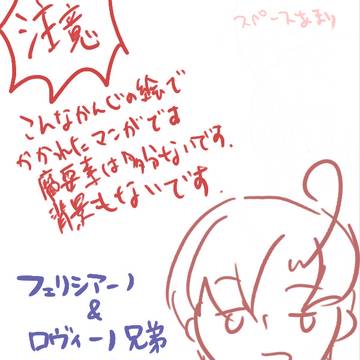 注意
スペースあまり
こんなかんじの絵で
かかれたマンガです
腐要素は多分ないです.
背景もないです.
フェリシアーノ
&
ロヴィーノ兄弟